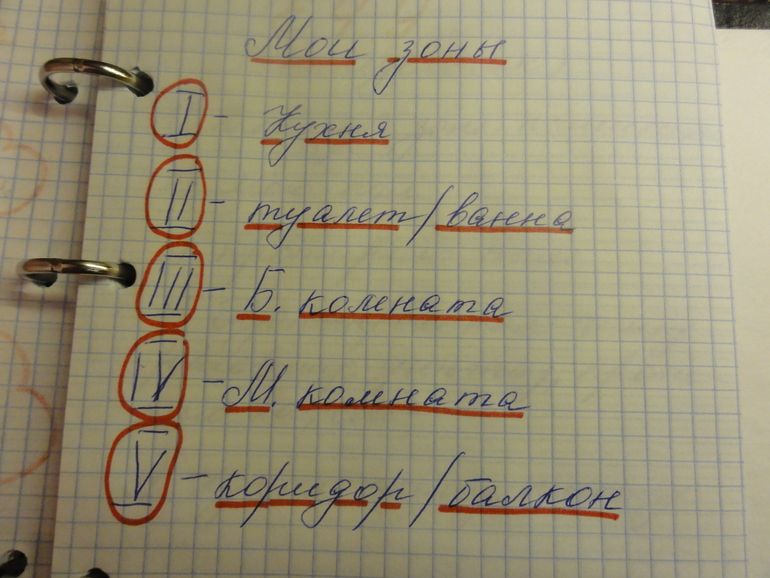 Мои зоны
I - Кухня
II - туалет/ванна
III - Б. комната
IV - М. комната
V - коридор/балкон